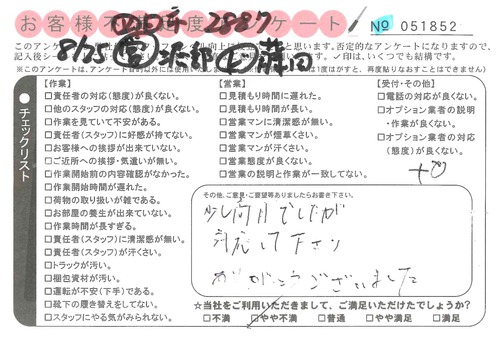 お客様不満足度アンケート
№ 051852
2887
8/25 営 次郎 藤田
このアンケー
記入後シー
※このアンケートは、アンケート目的以外には使用いたしま
【作業】
□責任者の対応(態度)が良くない。
□他のスタッフの対応(態度)が良くない。
□作業を見ていて不安がある。
□責任者(スタッフ)に好感が持てない。
□お客様への挨拶が出来ていない。
□ご近所への挨拶・気遣いが無い。
□作業開始前の内容確認がなかった。
□作業開始時間が遅れた。
□荷物の取り扱いが雑である。
□お部屋の養生が出来ていない。
□作業時間が長すぎる。
□責任者(スタッフ)に清潔感が無い。
□責任者(スタッフ)が汗くさい。
□トラックが汚い。
□梱包資材が汚い。
□運転が不安(下手)である。
□靴下の履き替えをしてない。
□スタッフにやる気がみられない。
【営業】
□見積もり時間に遅れた。
□見積もり時間が長い。
□営業マンに清潔感が無い。
□営業マンが煙草くさい。
□営業マンが汗くさい。
□営業態度が良くない。
□営業の説明と作業が一致してない。
【受付・その他】
□電話の対応が良くない。
□オプション業者の説明
・作業が良くない。
□オプション業者の対応
(態度)が良くない。
チェックリスト
その他、ご意見・ご要望等ありましたらお書き下さい。
対応して下さり
ありがとうございました
☆当社をご利用いただきまして、ご満足いただけたでしょうか?
□不満 □やや不満 □普通 □やや満足 □満足